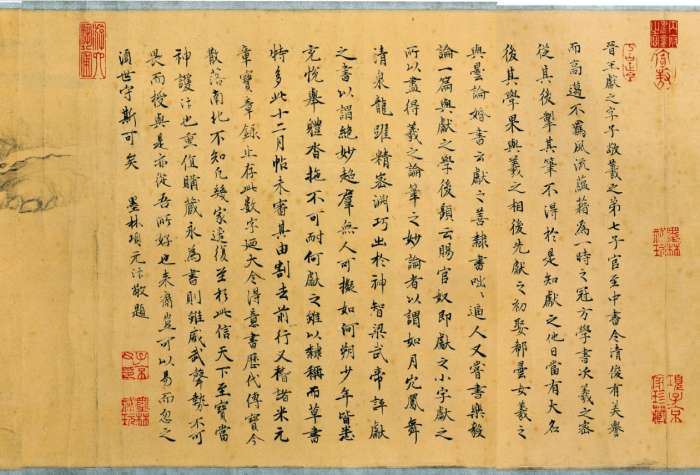 晉王獻之字子敬羲之第七子官至中書令清俊有美譽
而高邁不羈風流蘊藉為一時之冠方學書次羲之密
從其後掣其筆不得於是知獻之他日當有大名
後其學果與羲之相後先獻之初娶郗曇女羲之
與曇論婚書云獻之善隸書咄〻逼人又嘗書樂毅
論一篇與獻之學後題云賜官奴即獻之小字獻之
所以盡得羲之論筆之妙論者以謂如丹穴鳳舞
清泉龍躍精密淵巧出於神智梁武帝評獻
之書以謂絕妙超羣無人可擬如河朔少年皆悉
充悅舉體沓拖不可耐何獻之雖以隸稱而草書
特多此十二月帖未審其由割去前行又稽諸米元
章寶章錄止存此數字逼大令得意書歷代傳寶今
散落南北不知凡幾家後並於此信天下至寶當
神護訶也重值購藏永為書則雖威武聲勢不可
畏而授與是亦從吾所好也來裔豈可以易而忽之
酒世守斯可矣 墨林項元汴敬題
墨林祕玩
項子京家珍藏
子京父印
墨林祕玩